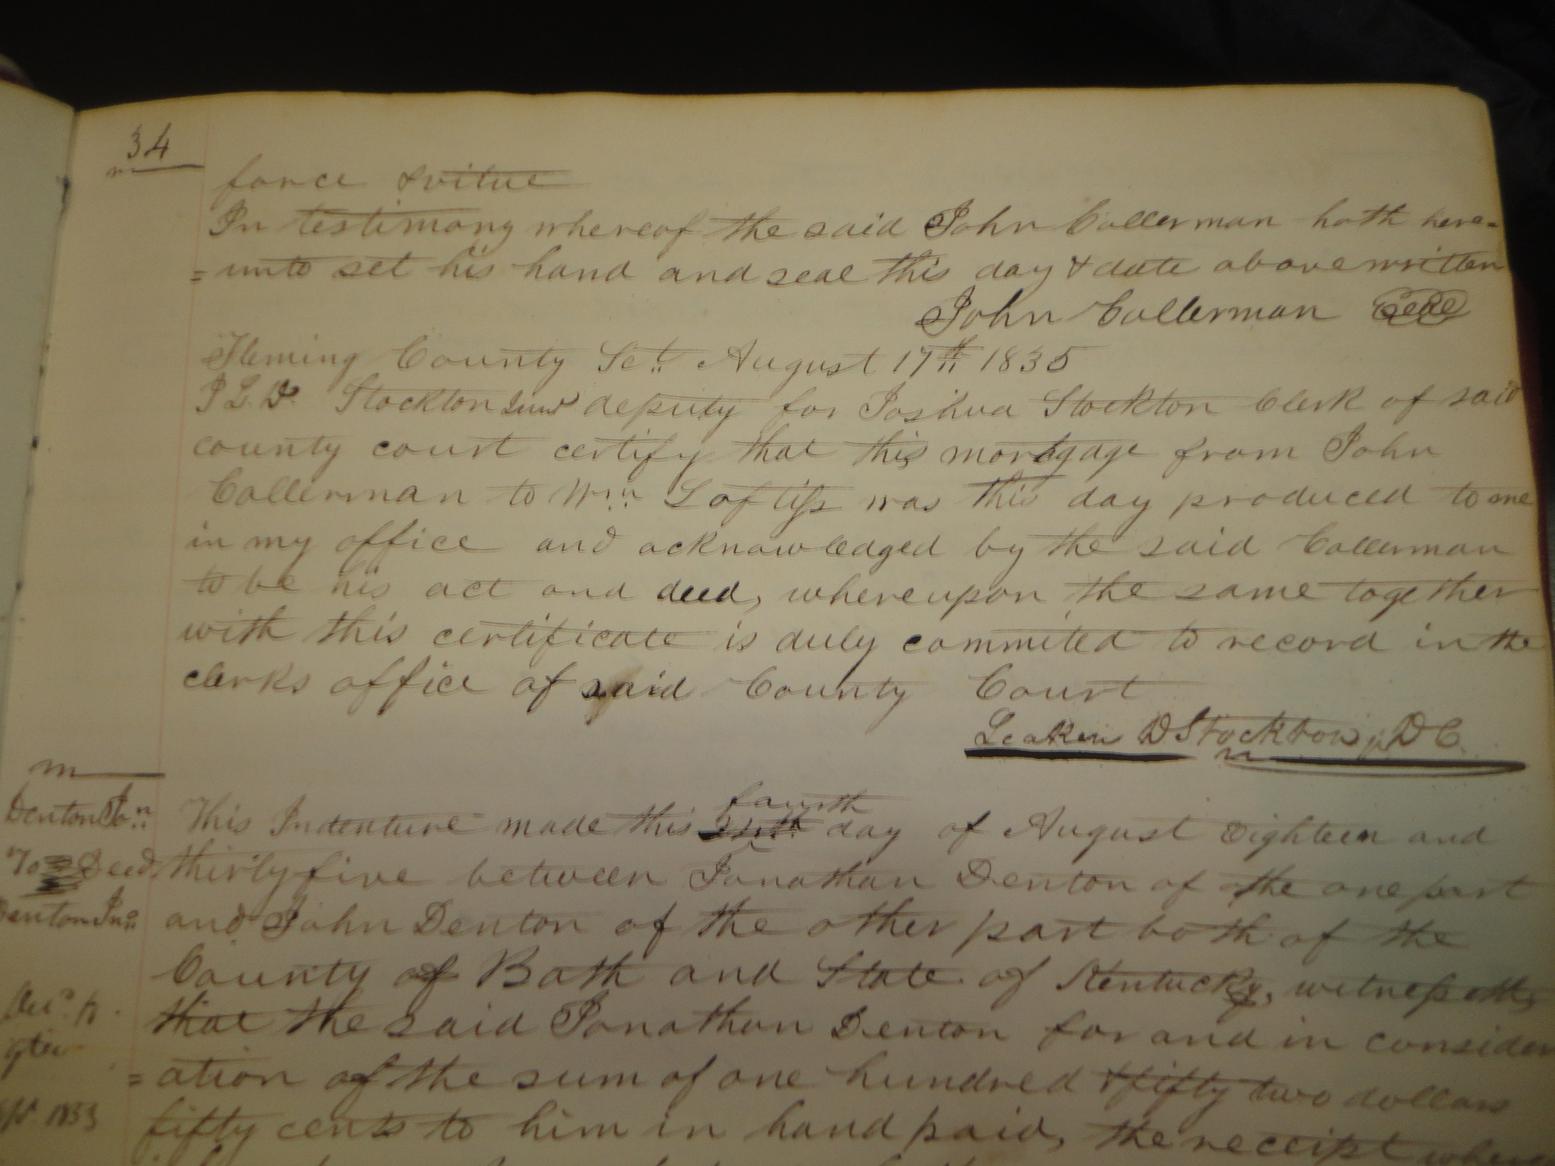 34
force & vitue
In testimony whereof the said John Collerman hath here=
=unto set his hand and seal this day & date above written
John Collerman Seal
Fleming County Sct. August 17th 1835
I L. D. Stockton deputy for Joshua Stockton Clerk of said
county court certify that this mortgage from John
Collerman to Wm Loftiss was this day produced to me
in my office and acknowledged by the said Collerman
to be his act and deed, whereupon the same together
with this certificate is duly commited to record in the
clerks office of said County Court
Leaken D Stockton jr D C.
Denton Jon
To Deed
Denton Jno
This Indenture made this fourth day of August Eighteen and
thirty five between Jonathan Denton of the one part
and John Denton of the other part both of the
County of Bath and State of Kentucky, witnesseth,
that the said Jonathan Denton for and in consider
=ation of the sum of one hundred & fifty two dollars
fifty cents to him in hand paid, the receipt where